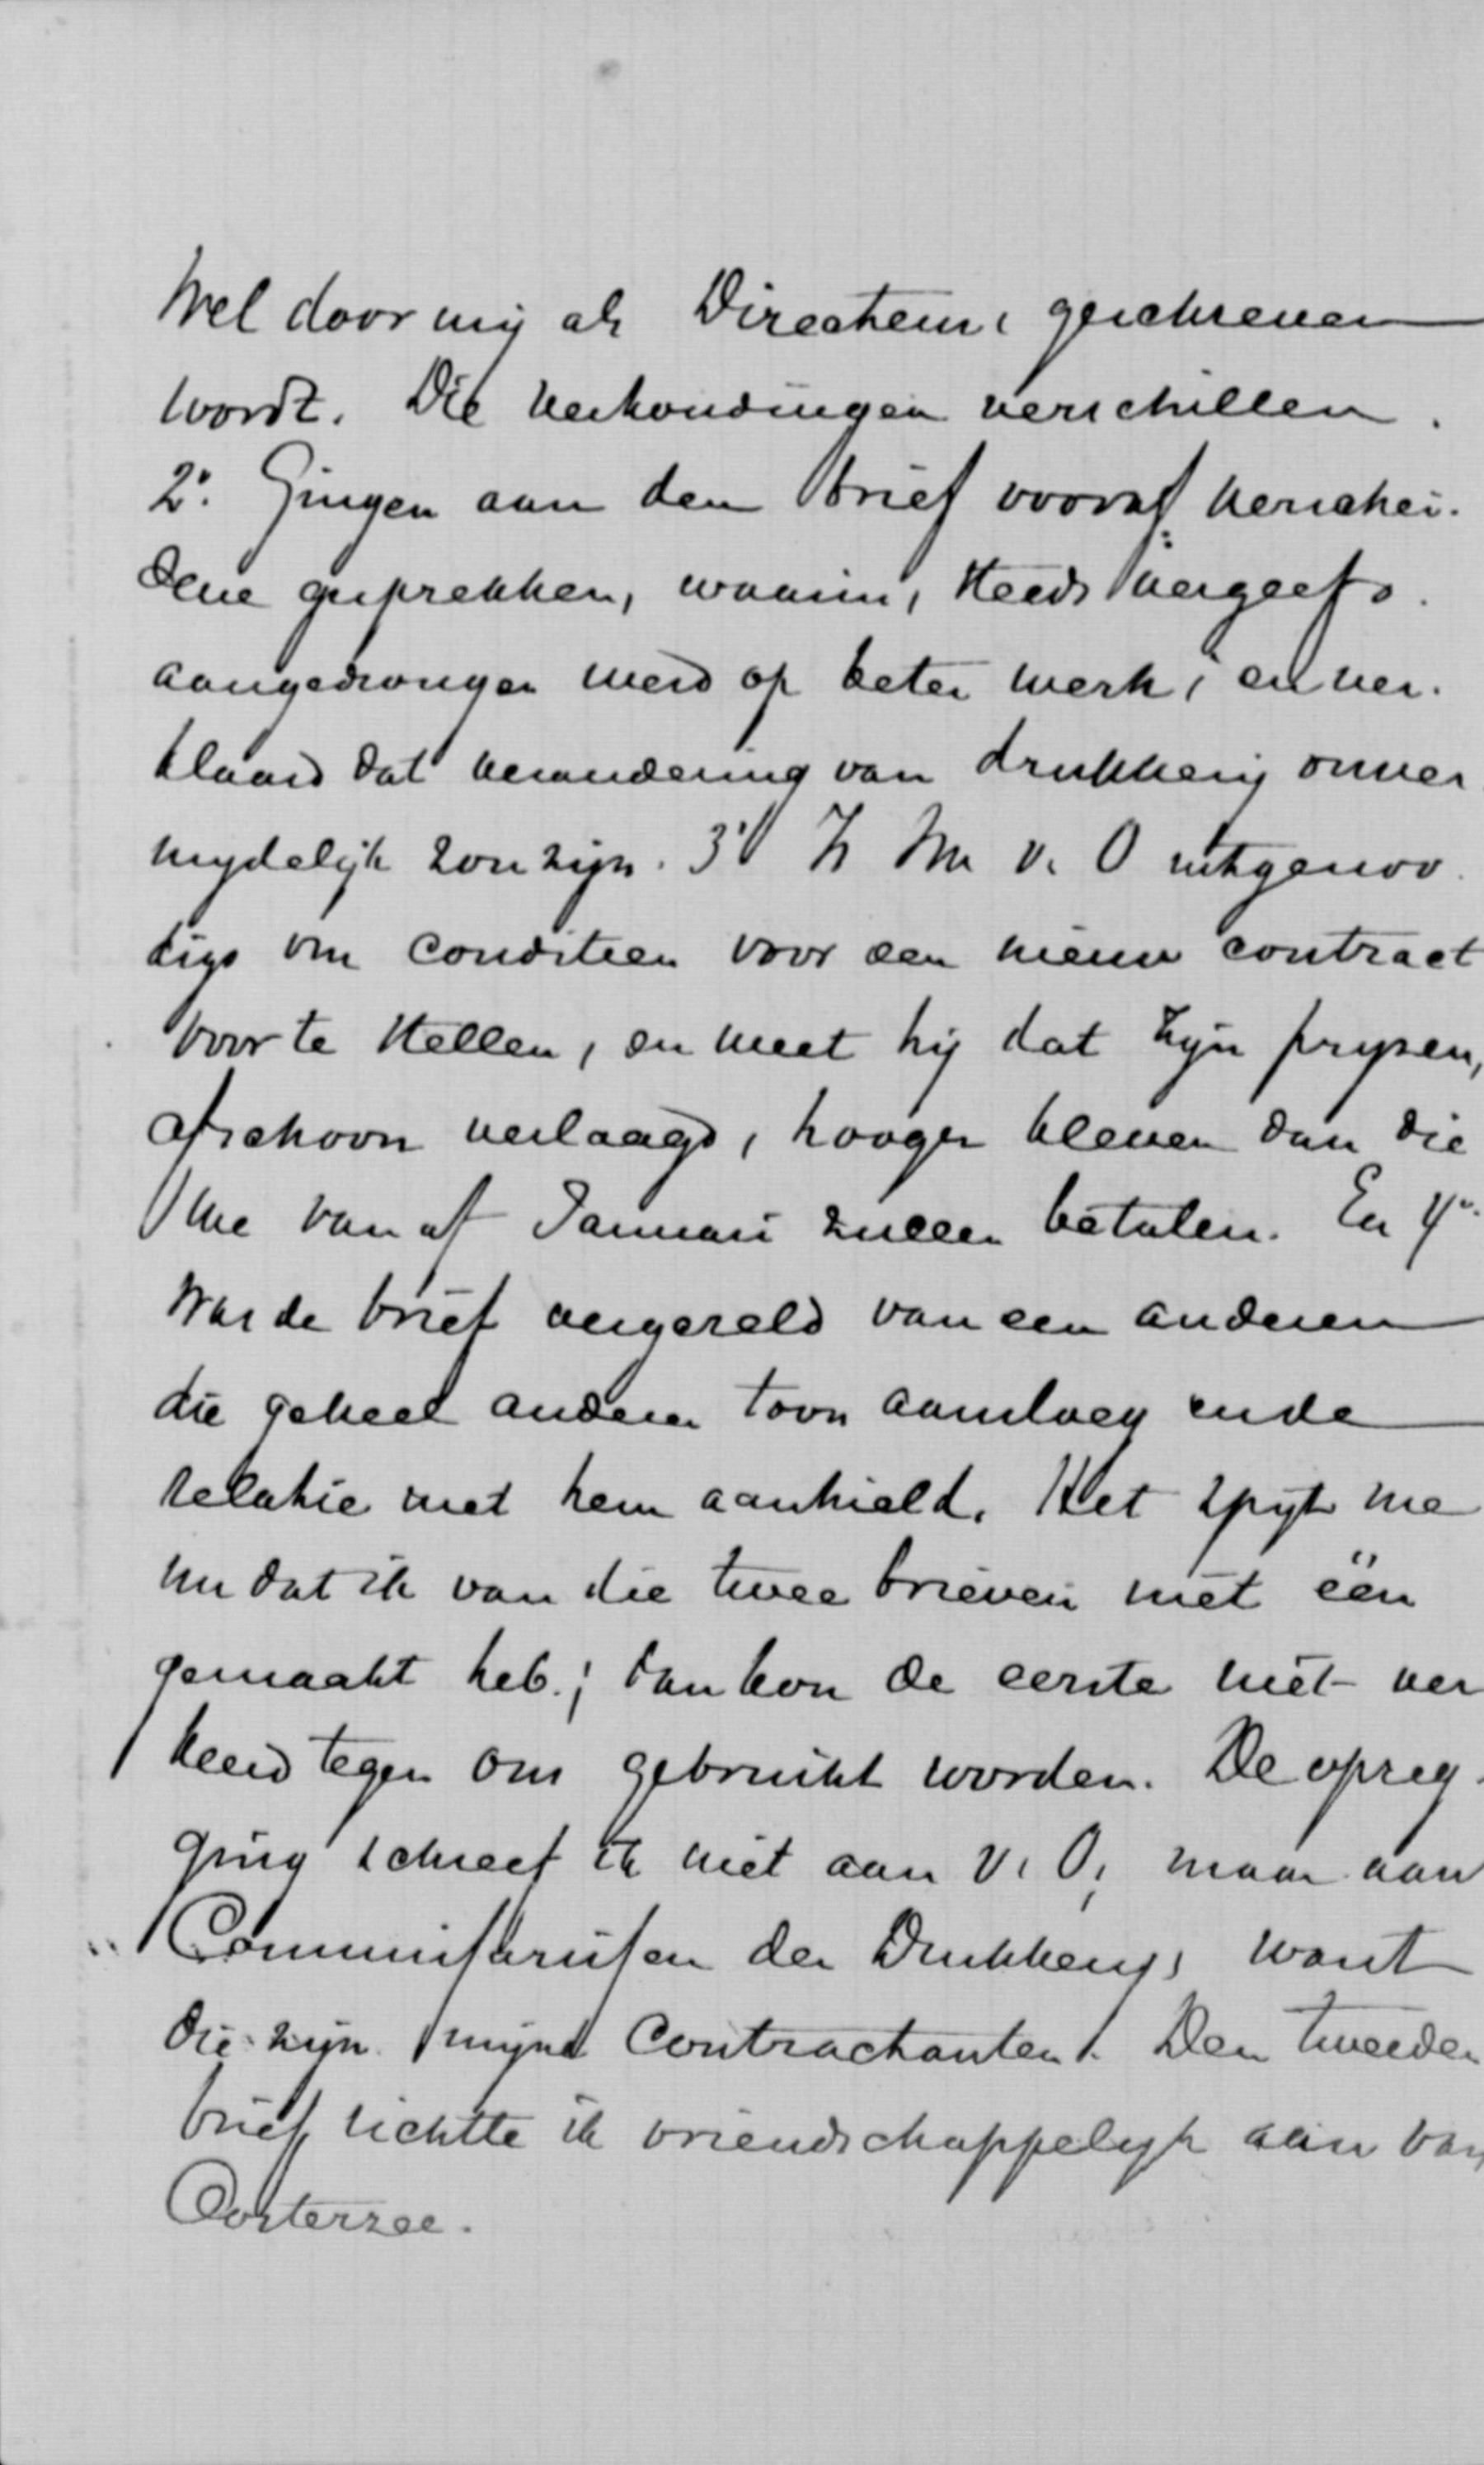 wel door mij als Directeur, geschreven
wordt. Die verhoudingen verschillen.
2°. Gingen aan den brief vooraf verschei-
dene gesprekken, waarin, steeds vergeefs.
aangedrongen werd op beter werk, en ver-
klaard dat verandering van drukkerij onver
mydelijk zou zijn. 3° Is M v. O uitgenoo
digd om conditien voor een nieuw contract
voor te stellen, en weet hij dat zijn prijzen,
ofschoon verlaagd, hooger bleven dan die
we van af Januari zullen betalen. En 4°.
was de brief vergezeld van een anderen
die geheel anderen toon aansloeg en de
relatie met hem aanhield. Het spijt me
nu dat ik van die twee brieven niet één
gemaakt heb; dan kon de eerste niet ver
keerd tegen ons gebruikt worden. De opzeg-
ging schreef ik niet aan v. O, maar aan
Commissarissen der Drukkerij, want
die zijn mijne Contractanten. Den tweeden
brief richtte ik vriendschappelijk aan van
Oosterzee.